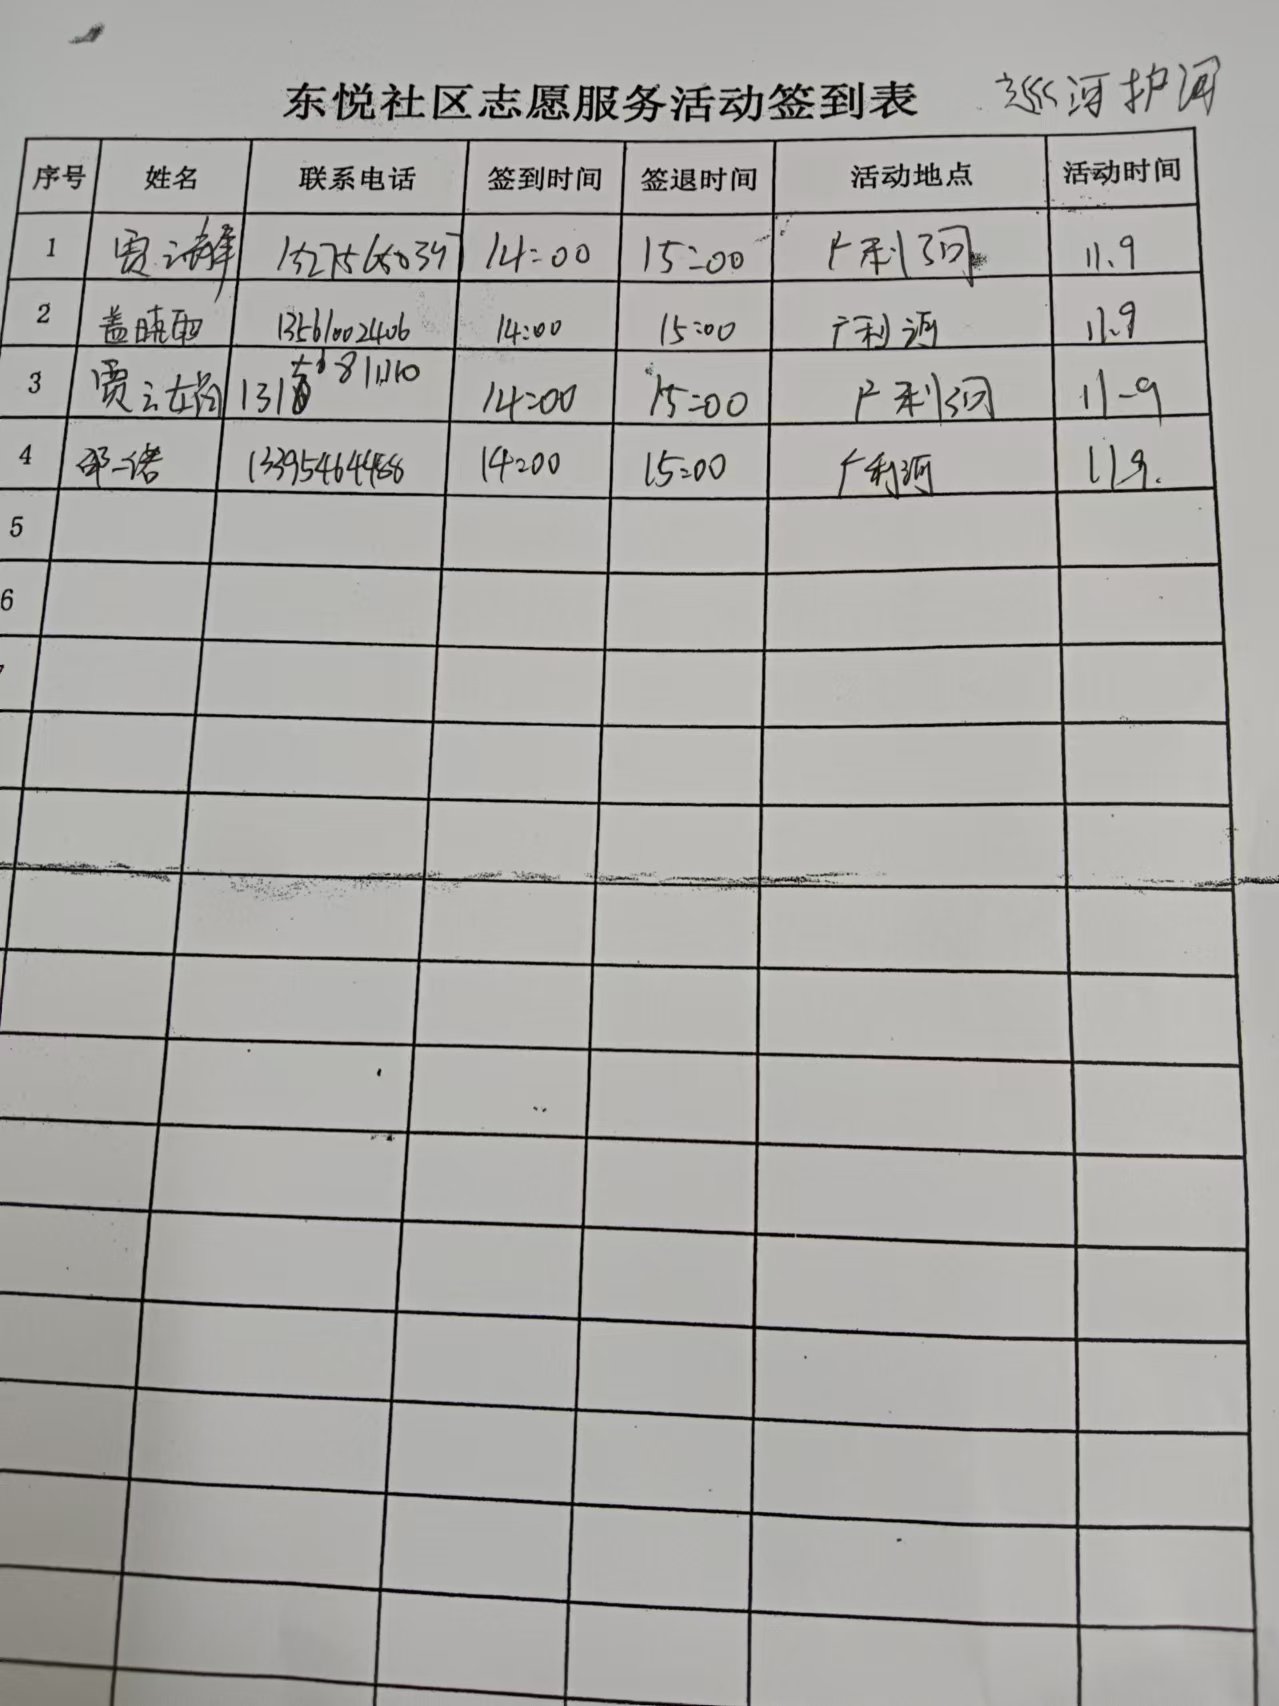 东悦社区志愿服务活动签到表 巡河护河
序号 姓名 联系电话 签到时间 签退时间 活动地点 活动时间
1 贾 14:00 15:00 广利河 11.9
2 盖晓雨 13561002406 14:00 15:00 广利河 11.9
3 贾云 14:00 15:00 广利河 11-9
4 邵一诺 13395464486 14:00 15:00 广利河 11.9.
5
6
7